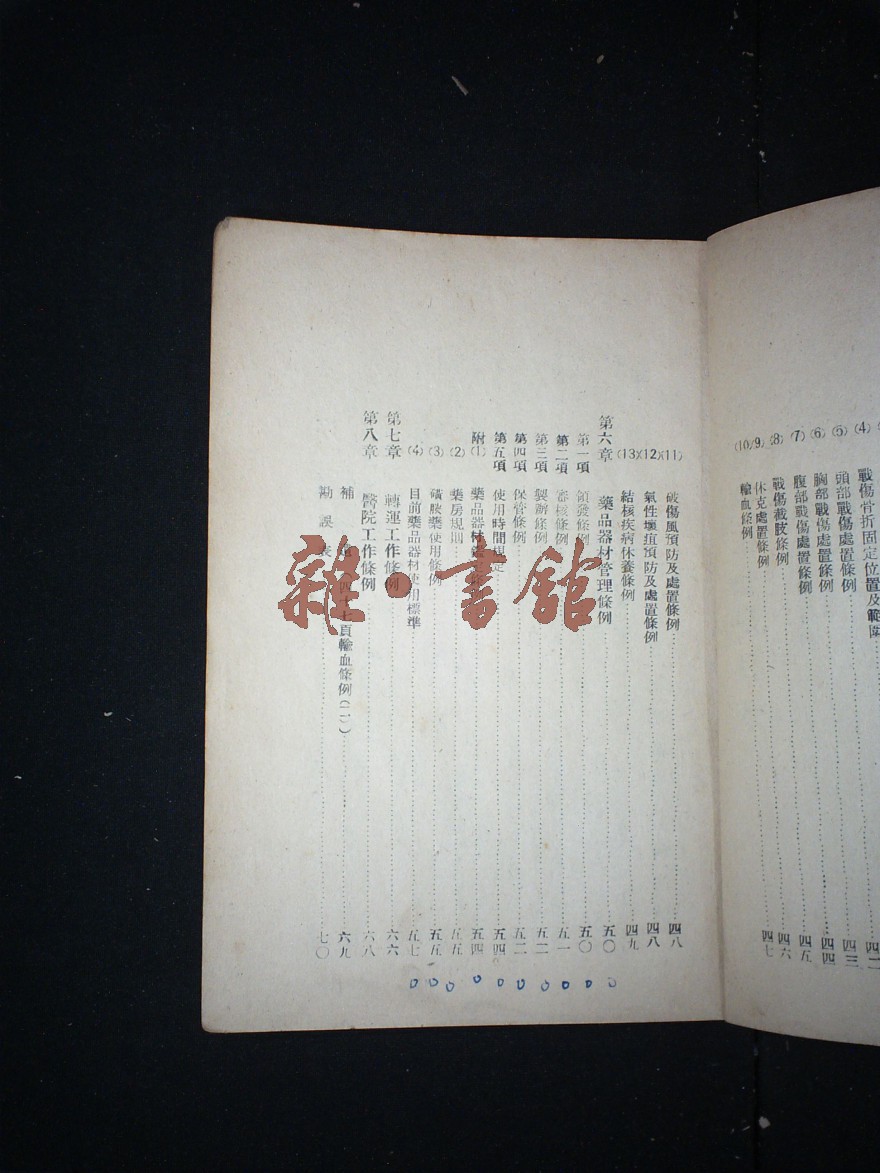 戰傷骨折固定位置及範圍
(4) 頭部戰傷處置條例 四三
(5) 胸部戰傷處置條例 四四
(6) 腹部戰傷處置條例 四五
(7) 戰傷截肢條例 四六
(8) 休克處置條例
(9) 輸血條例 四七
(10)
(11) 破傷風預防及處置條例 四八
(12) 氣性壞疽預防及處置條例 四八
(13) 結核疾病休養條例 四九
第六章 藥品器材管理條例 五〇
第一項 領發條例 五〇
第二項 審核條例 五一
第三項 製辦條例 五二
第四項 保管條例 五二
第五項 使用時間規定 五四
附(1) 藥品器材 五四
(2) 藥房規則 五五
(3) 磺胺藥使用條例 五五
(4) 目前藥品器材使用標準 五七
第七章 轉運工作條例 六六
第八章 醫院工作條例 六八
補 四十七頁輸血條例(二) 六九
勘誤表 七〇
雜·書館